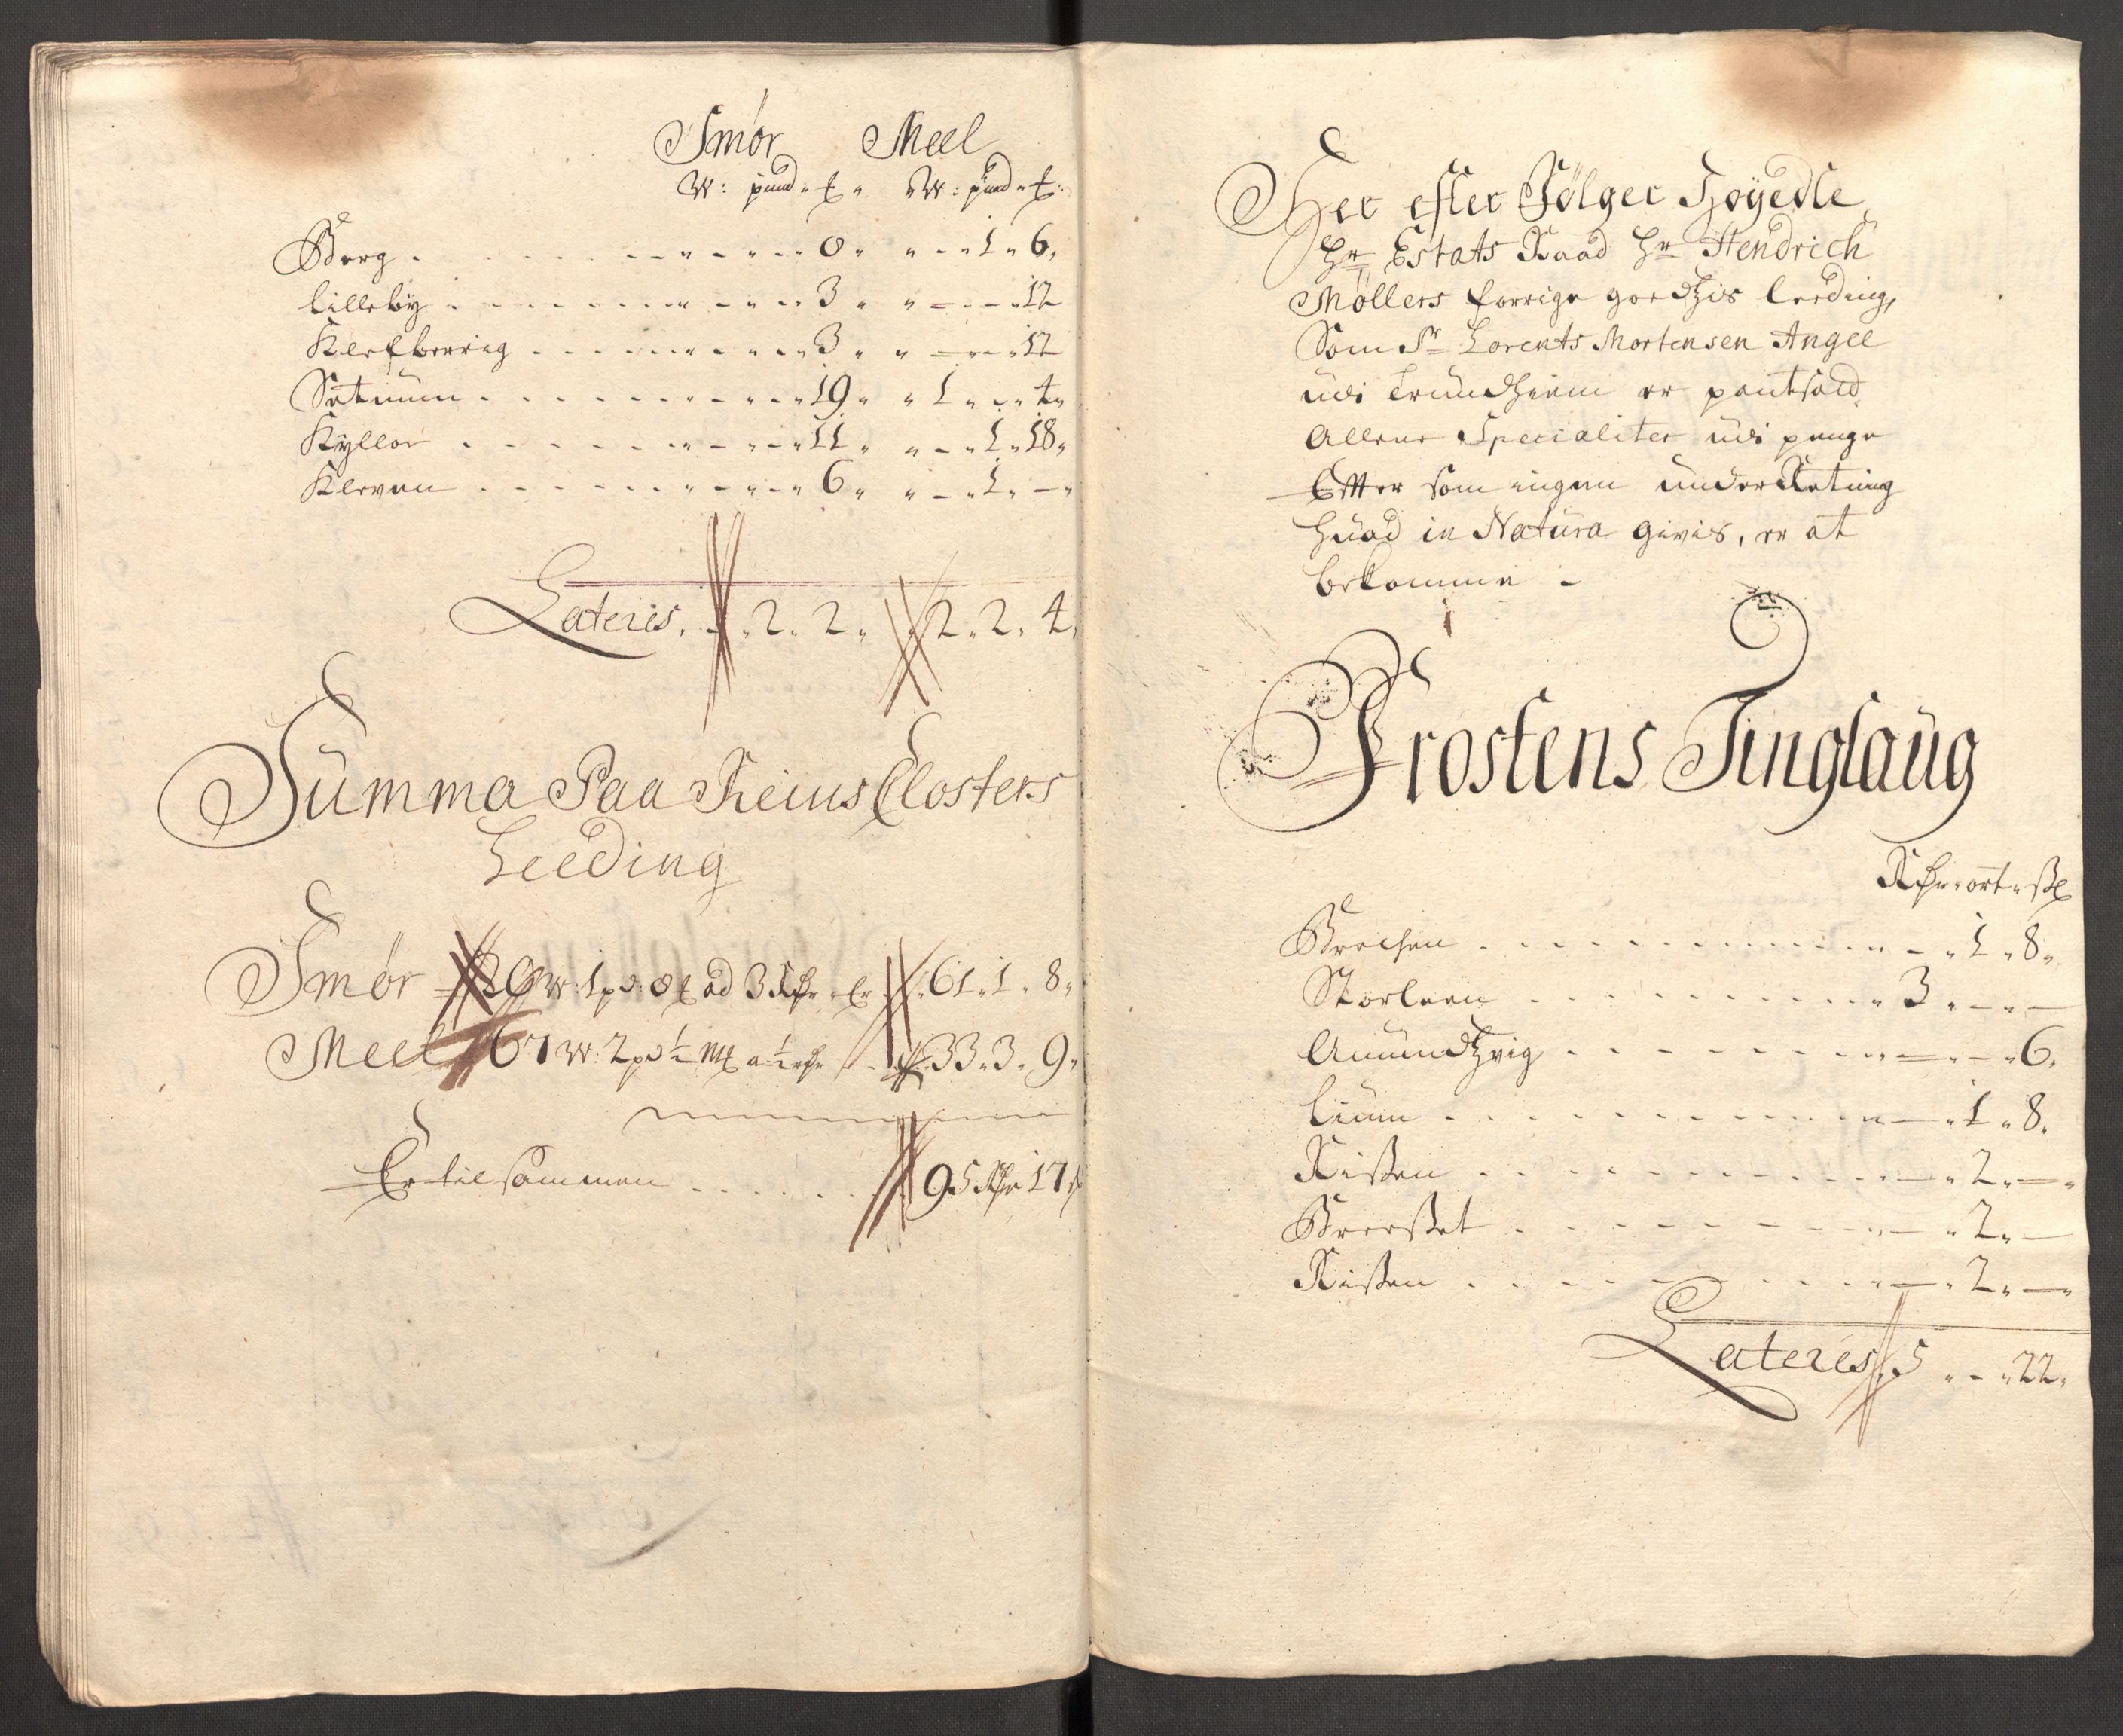 Smør Meel
W: pund „ ℔ „ W: pund „ ℔:
Berg . . . . 8 „ „ – „ 1 „ 6 „
Lilleby . . . . 3 „ „ – „ – „ 12
Klefberrig . . . . 3 „ „ – „ – „ 12
Setnum . . . . 19 „ „ 1 „ – „ 4 „
Kyllor . . . . 11 „ „ – „ 1 „ 18 „
Kleven . . . . 6 „ „ – „ 1 „ – „
Lateris. – „ 2 „ 2 „ „ 2 „ 2 „ 4 „
Summa Paa Reins Closters
Leeding
Smør 20 W: 1 pd: 8 ℔ ad 3 Rdr „ Er 61 „ 1 „ 8 „
Meel 67 W: 2 pd ½ M℔ a ½ rdr 33 „ 3 „ 9 „
Er tilsammen . . . . . 95 Rdr 17 ß
Her efter Følger Høyedle
Hr Estats Raad Hr Hendrich
Møllers forrige goedzis leeding,
Som Sr Lorents Mortensen Angel
udi Trundhiem er pantsatt
Allene Specialiter udi penge
Efftersom ingen underRetning
huad in Natura givis, er at
bekomme –
Frostens Tinglaug
Rdr „ ort „ ß
Brechen . . . . – „ 1 „ 8 „
Storleen . . . . 3 „ – „ –
Amundzvig . . . . – „ – „ 6 „
Lium . . . . – „ 1 „ 8 „
Risten . . . . – „ 2 „ – „
Breestet . . . . – „ 2 „ –
Risten . . . . – „ 2 „ – „
Lateris „ 5 „ – „ 22 „